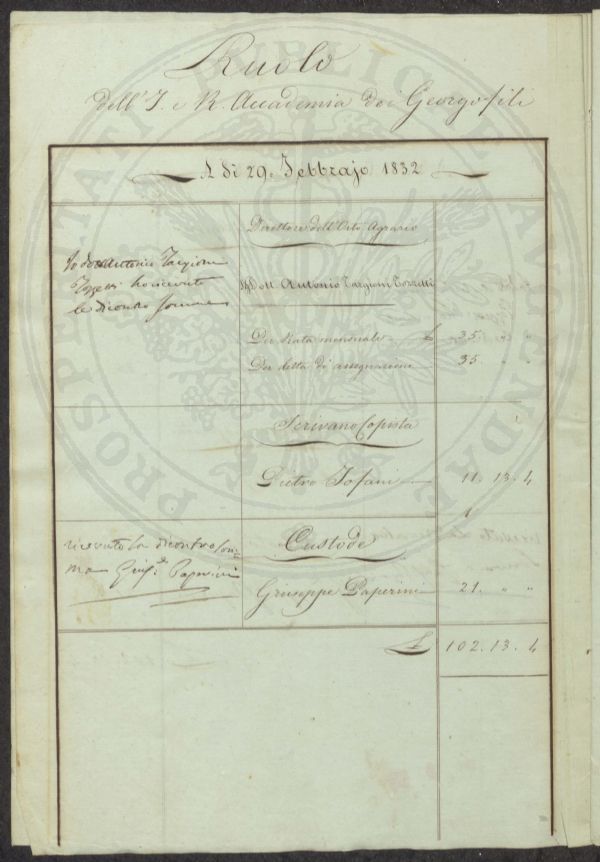 Ruolo
dell' I. e R. Accademia dei Georgofili
A dì 29. Febbrajo 1832
Direttore dell'Orto Agrario
Io Dott Antonio Targioni
Tozzetti ho ricevuto
le dicontro somme
Sig. Dott. Antonio Targioni Tozzetti
Per Rata mensuale £ 35. " "
Per detta di assegnazione 35 " "
Scrivano Copista
Pietro Tofani 11. 13. 4
Custode
ricevuto la dicontro som-
ma Gius.e Paperini
Giuseppe Paperini 21. " "
£ 102. 13. 4
PROSPERITATI PUBLICAE AUGENDAE